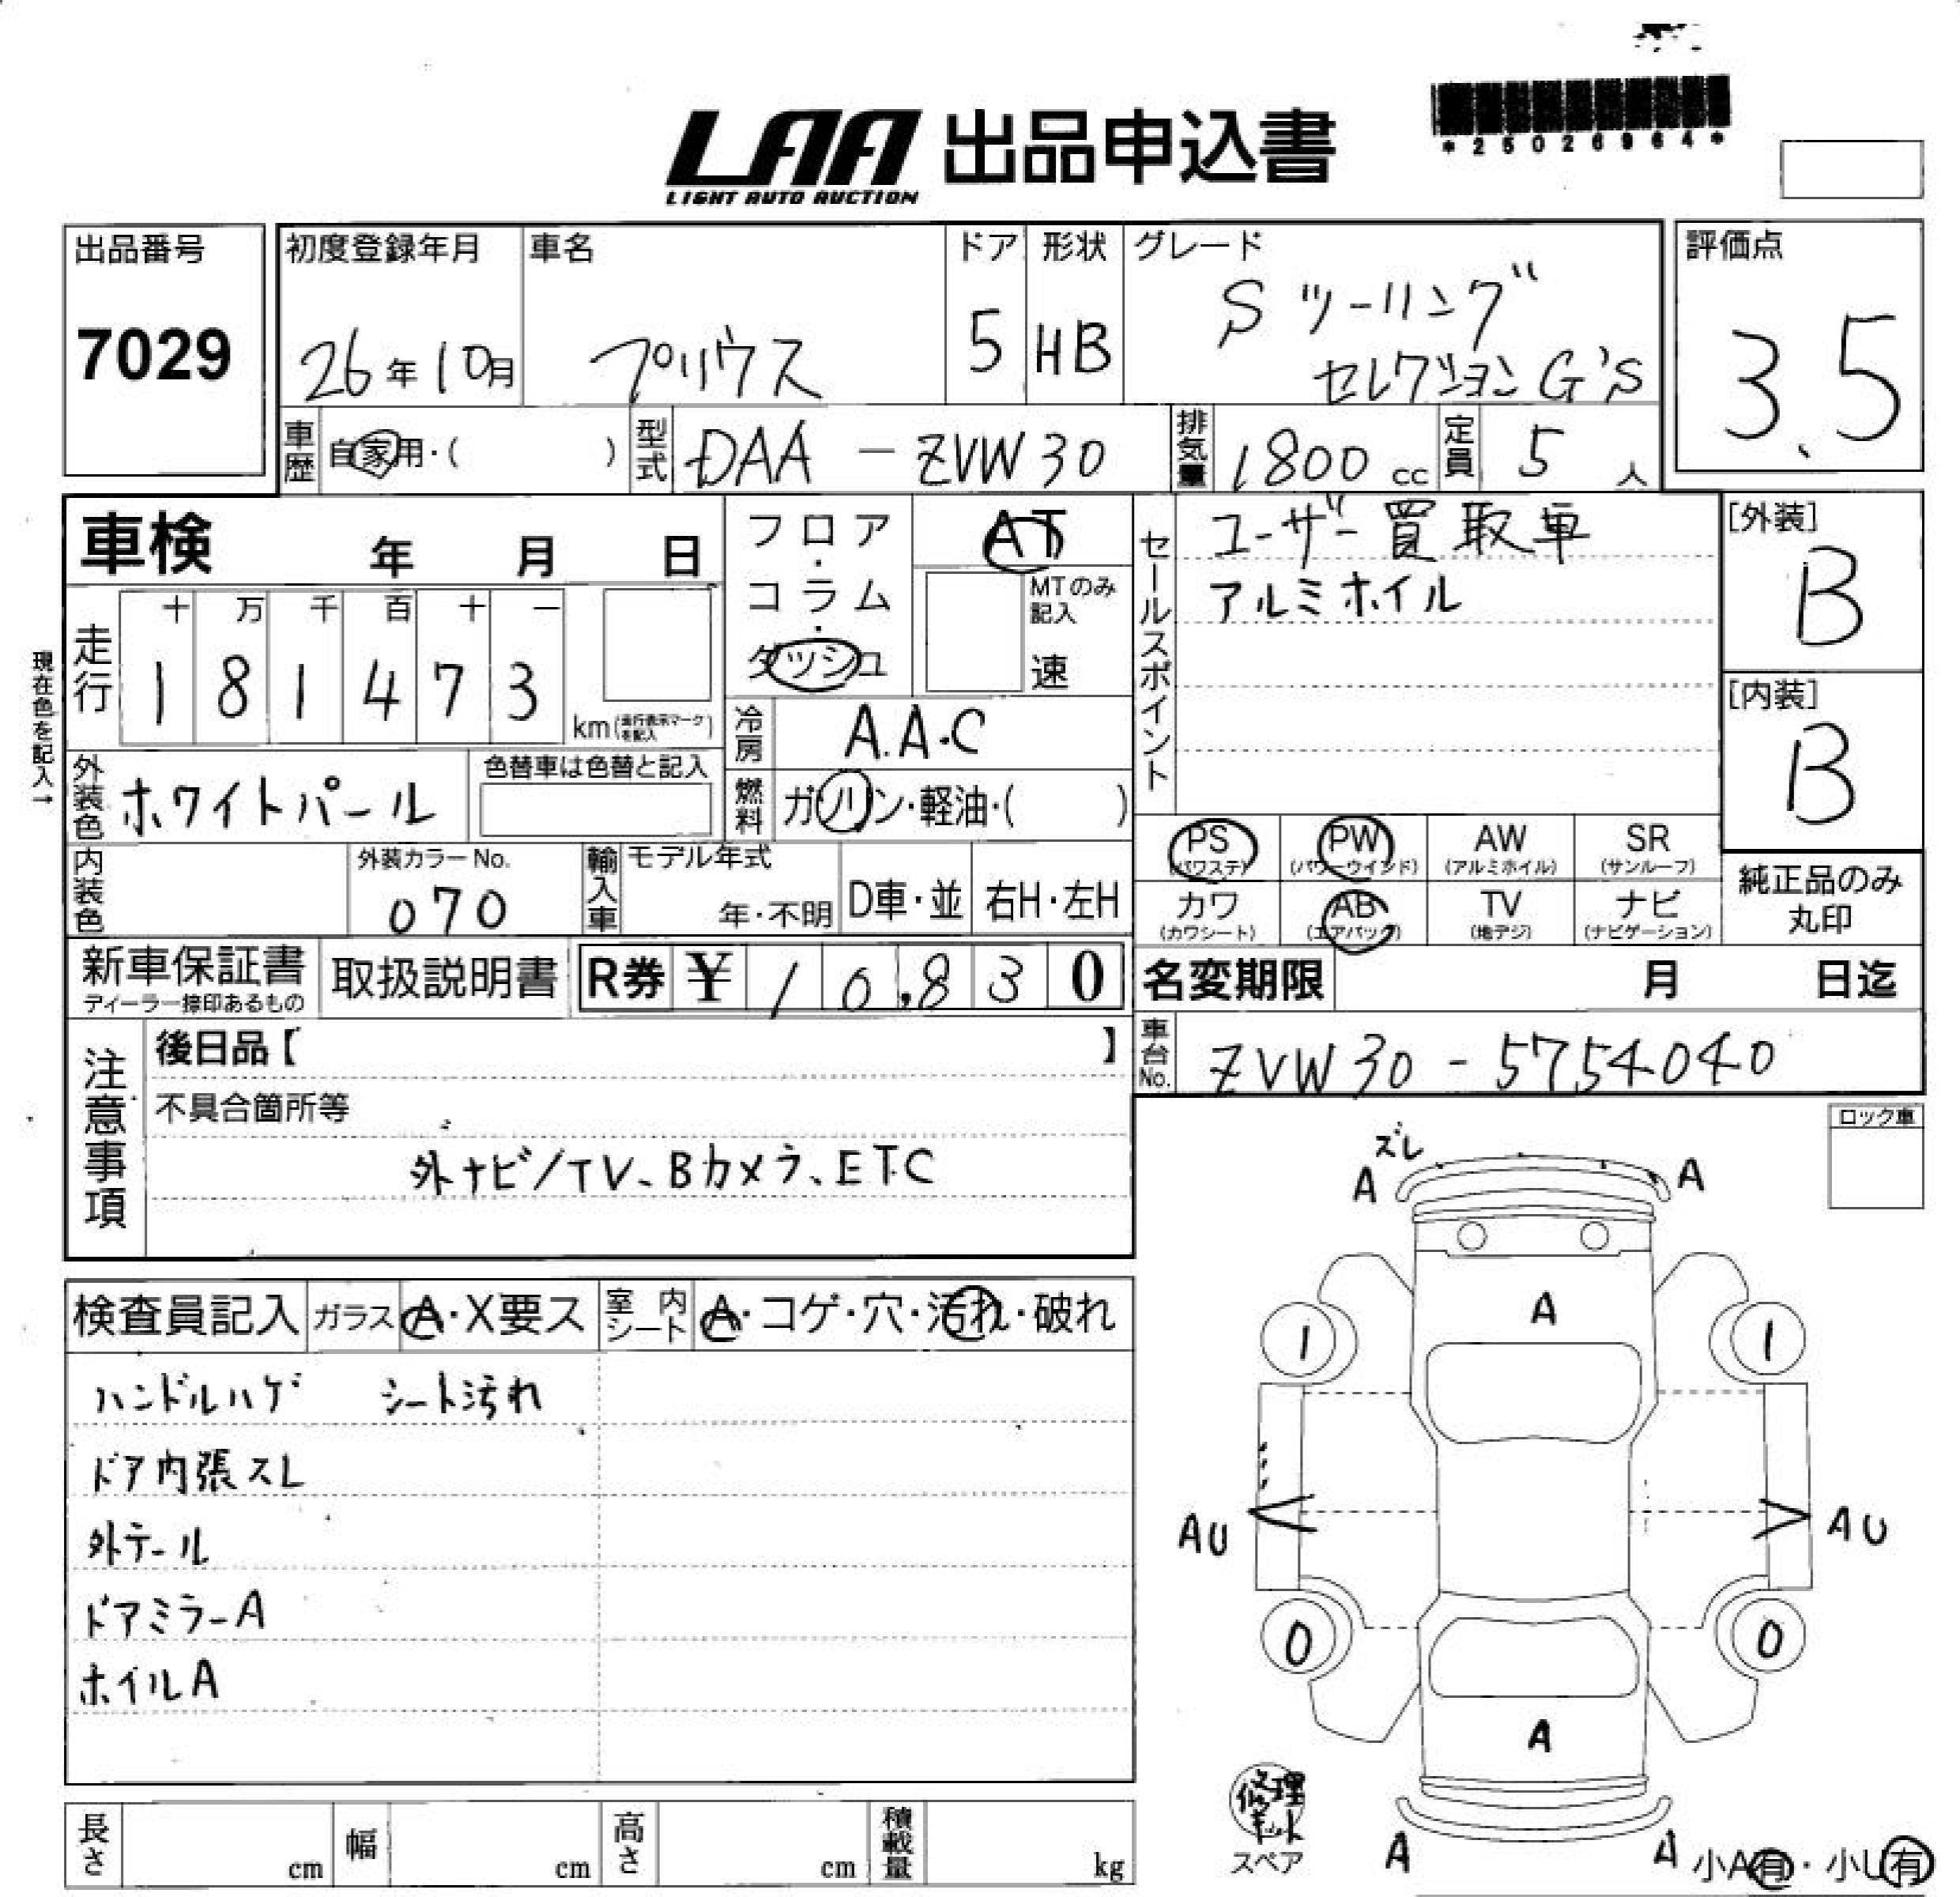 LAA 出品申込書
LIGHT AUTO AUCTION
*25026964*
出品番号
7029
初度登録年月
26年10月
車名
プリウス
ドア
5
形状
HB
グレード
Sツーリング
セレクションG's
評価点
3.5
車歴 自家用・( )
型式 DAA-ZVW30
排気量 1800cc
定員 5人
車検 年 月 日
フロア・コラム・ダッシュ
AT
MTのみ記入
速
セールスポイント
ユーザー買取車
アルミホイル
[外装]
B
[内装]
B
現在色を記入→
走行
十 万 千 百 十 一
1 8 1 4 7 3
km(走行表示マークを記入)
冷房 A.A.C
外装色 ホワイトパール
色替車は色替と記入
燃料 ガソリン・軽油・( )
PS (パワステ)
PW (パワーウインド)
AW (アルミホイル)
SR (サンルーフ)
カワ (カワシート)
AB (エアバック)
TV (地デジ)
ナビ (ナビゲーション)
純正品のみ
丸印
内装色
外装カラーNo.
070
輸入車
モデル年式
年・不明
D車・並
右H・左H
新車保証書
ディーラー捺印あるもの
取扱説明書
R券 ¥10,830
名変期限 月 日迄
車台No. ZVW30-5754040
注意事項
後日品【 】
不具合箇所等
外ナビ/TV、Bカメラ、ETC
ロック車
検査員記入 ガラス A・X要ス 室内シート A・コゲ・穴・汚れ・破れ
ハンドルハゲ シート汚れ
ドア内張スレ
外テール
ドアミラーA
ホイルA
ズレ
A A
A
1 1
AU AU
0 0
A
修理キット
スペア
A A
小A有・小U有
長さ cm
幅 cm
高さ cm
積載量 kg